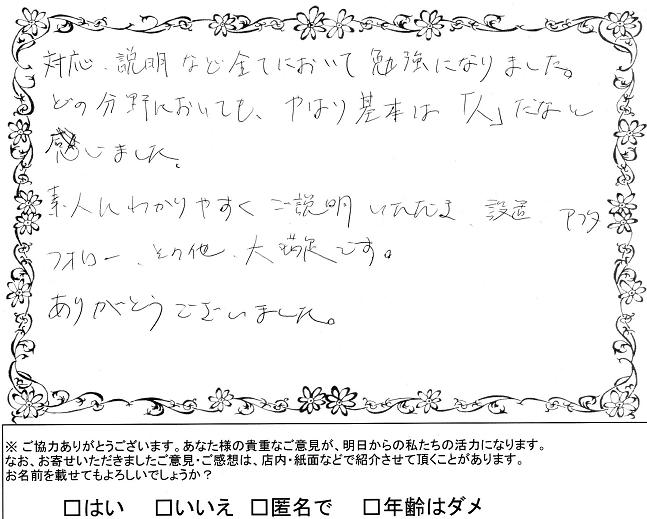 対応、説明など全てにおいて勉強になりました。
どの分野においても、やはり基本は「人」だなと
感じました。
素人にわかりやすくご説明いただき、設置、アフタ
フォロー、その他、大満足です。
ありがとうございました。
※ ご協力ありがとうございます。あなた様の貴重なご意見が、明日からの私たちの活力になります。
なお、お寄せいただきましたご意見・ご感想は、店内・紙面などで紹介させて頂くことがあります。
お名前を載せてもよろしいでしょうか？
□はい □いいえ □匿名で □年齢はダメ